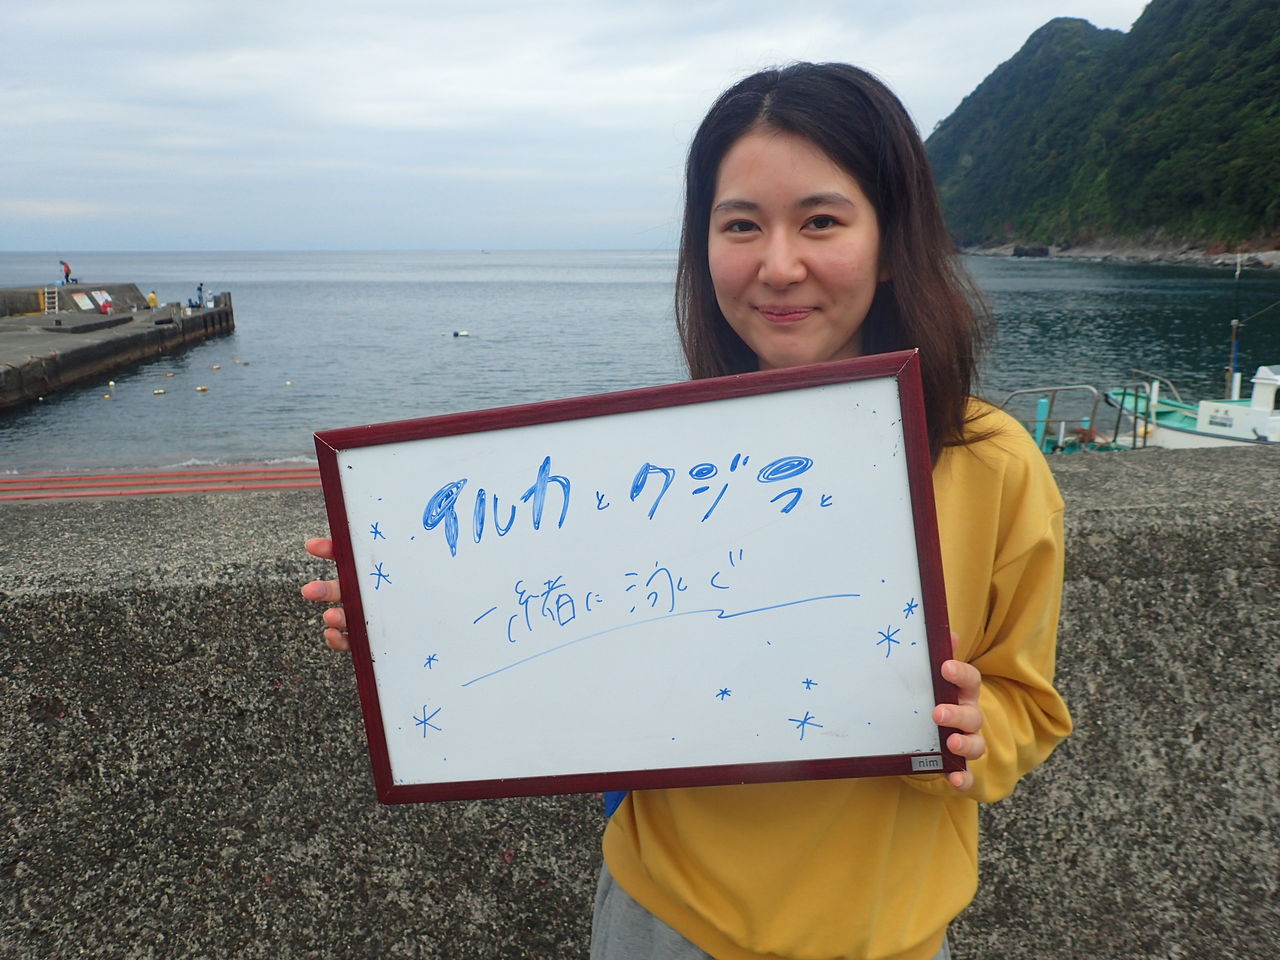 イルカとクジラと
一緒に泳ぐ
nim